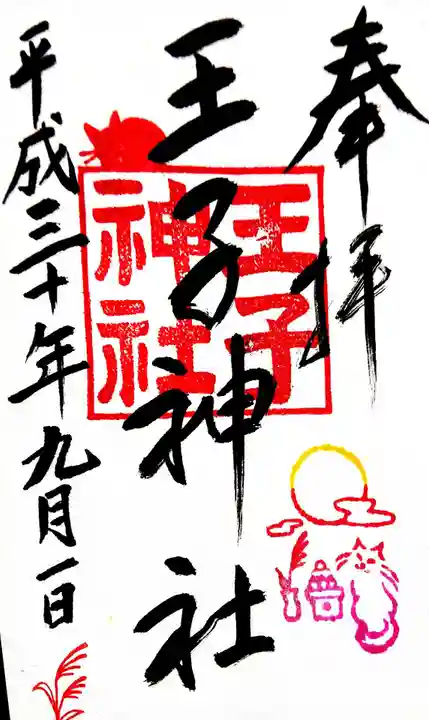 奉拝
王子神社
王子神社
平成三十年九月一日